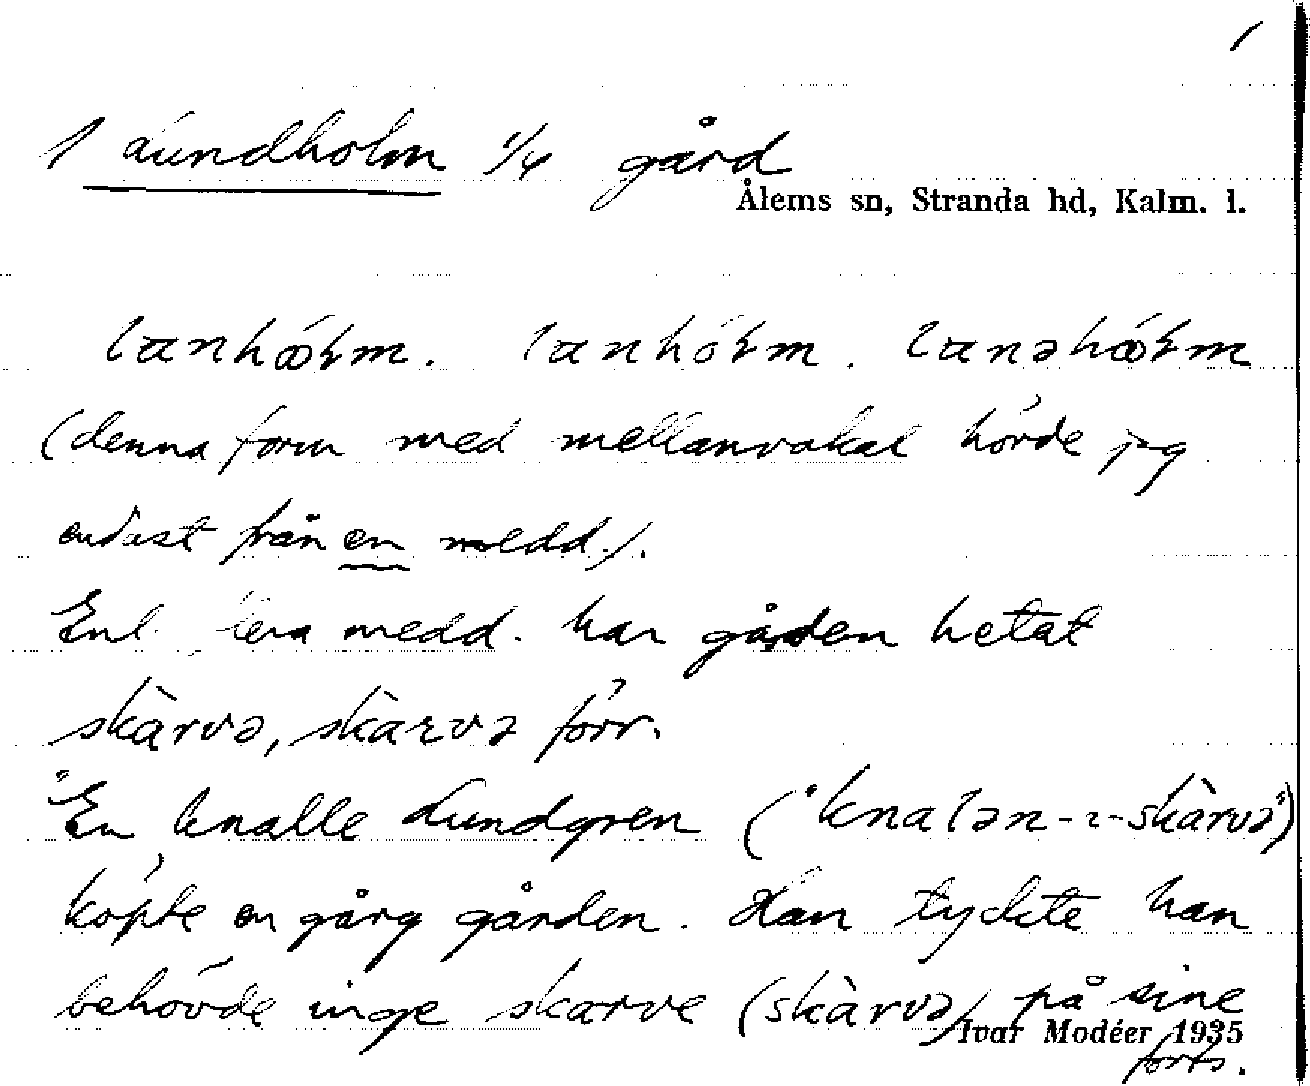 1 Lundholm 1/4 gård
Ålems sn, Stranda hd, Kalm. l.
(denna form med mellanvokal hörde jag
endast från en medd.).
Enl. flera medd. har gården hetat
skàrvə, skàrvə förr.
En knalle Lundgren ("knalən-ı-skàrvə")
köpte en gång gården. Han tyckte han
behövde inge skarve (skàrvə) på sine
Ivar Modéer 1935
forts.